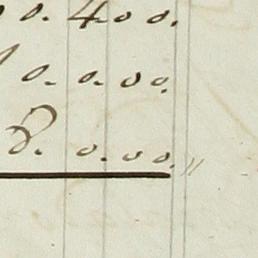 0. 400.
0. 0. 00.
8. 0. 00. "